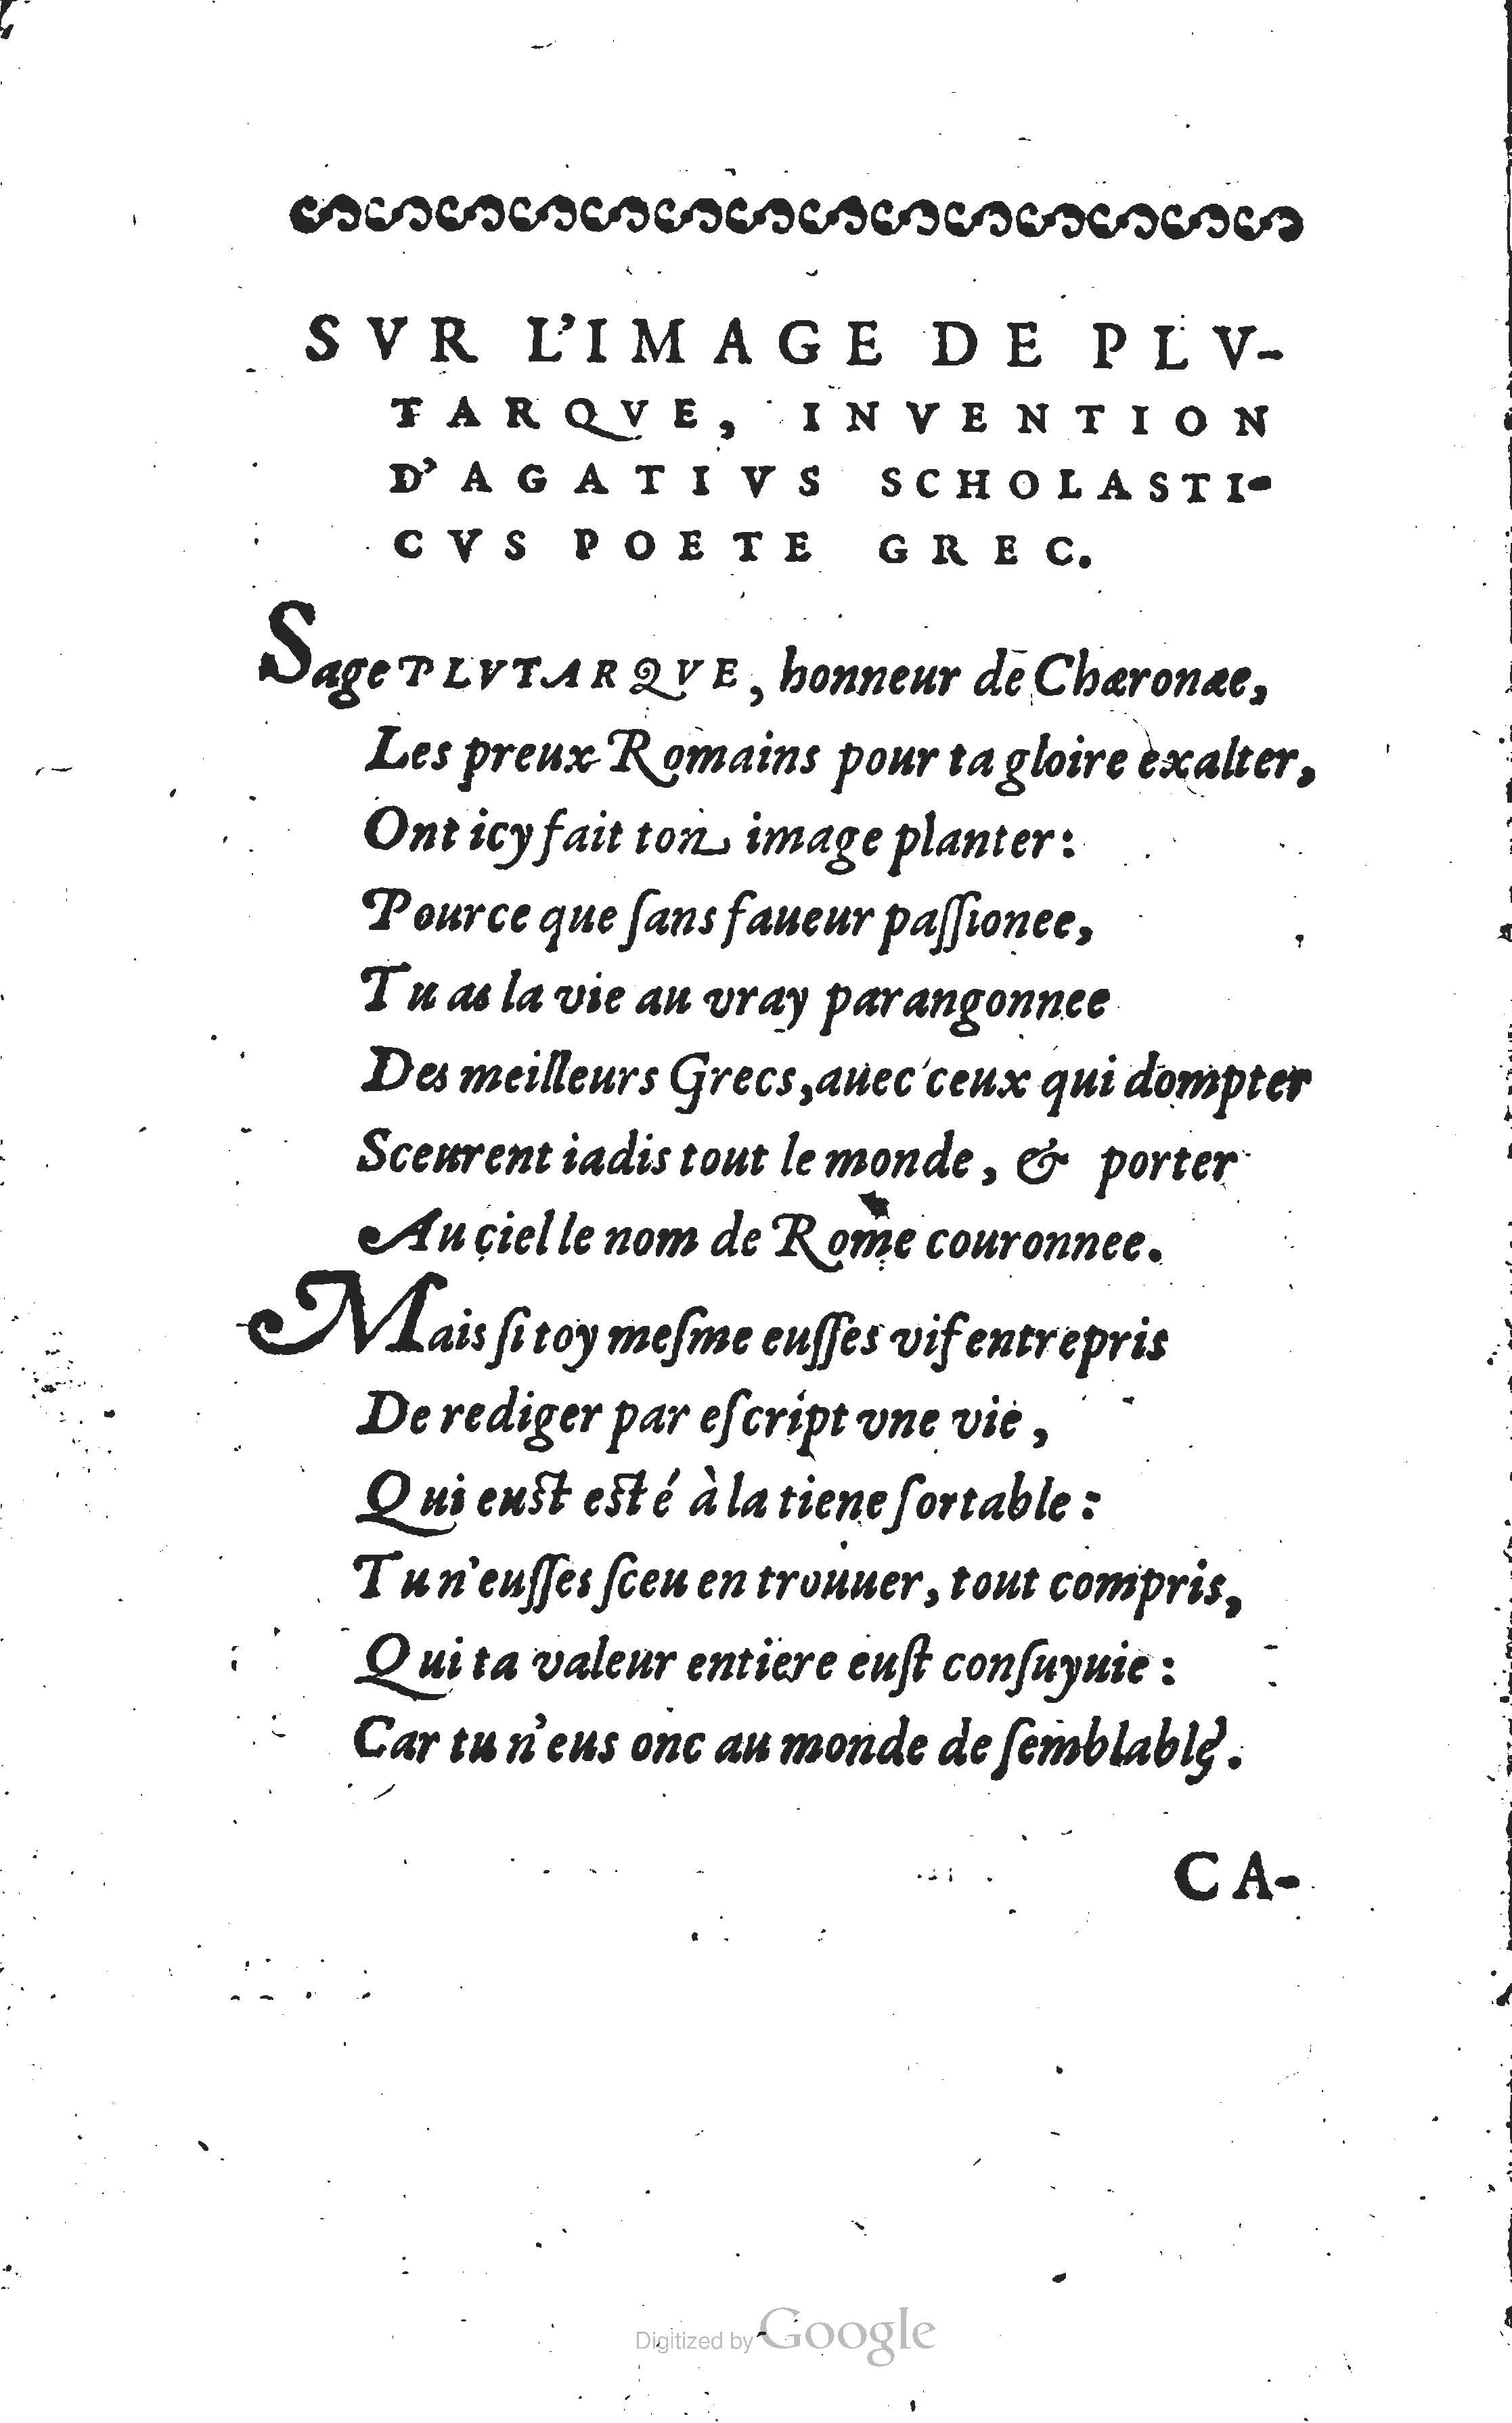 SVR L'IMAGE DE PLV-
TARQVE, INVENTION
D'AGATIVS SCHOLASTI-
CVS POETE GREC.
Sage PLVTARQVE, honneur de Chæronæe,
Les preux Romains pour ta gloire exalter,
Ont icy fait ton image planter:
Pource que ſans faueur paſſionee,
Tu as la vie au vray parangonnee
Des meilleurs Grecs, auec ceux qui dompter
Sceurent iadis tout le monde, & porter
Au çiel le nom de Rome couronnee.
Mais ſi toy meſme euſſes vif entrepris
De rediger par eſcript vne vie,
Qui euſt eſté à la tiene ſortable:
Tu n'euſſes ſceu en trouuer, tout compris,
Qui ta valeur entiere euſt conſuyuie:
Car tu n'eus onc au monde de ſemblable.
CA-
Digitized by Google